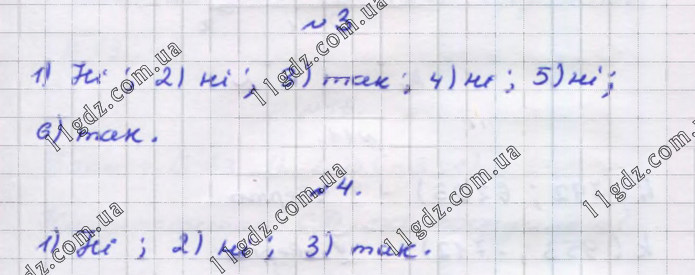 № 3
1) Ні; 2) ні; 3) так; 4) ні; 5) ні;
6) так.
№ 4.
1) Ні; 2) ні; 3) так.
11gdz.com.ua
11gdz.com.ua
11gdz.com.ua
11gdz.com.ua
11gdz.com.ua
11gdz.com.ua